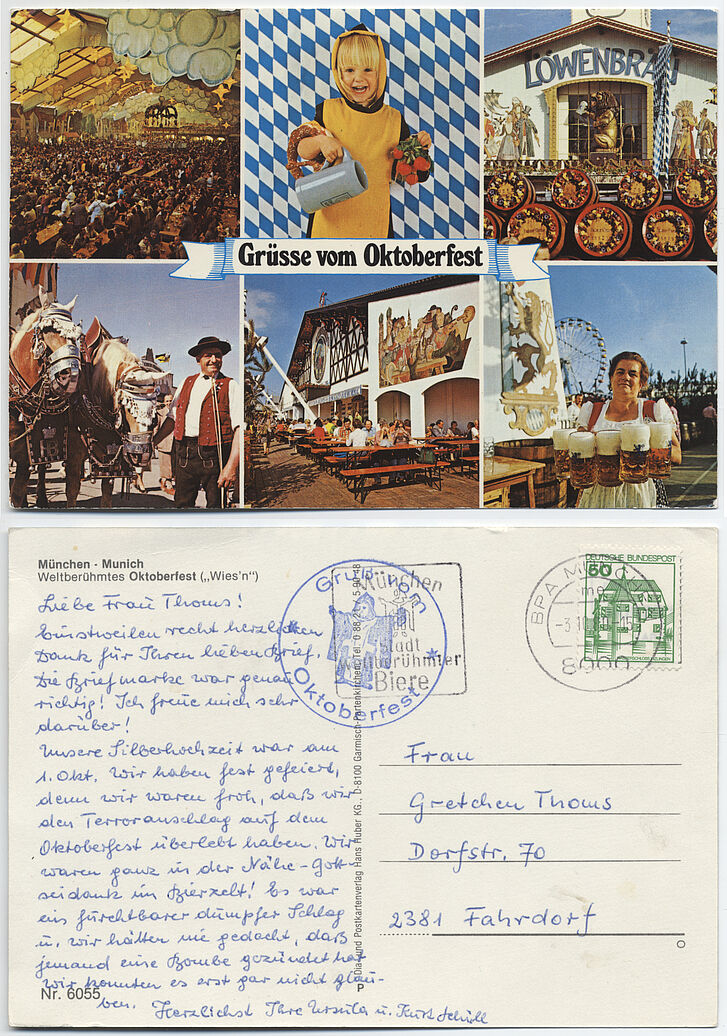 LÖWENBRÄU
Grüsse vom Oktoberfest
München · Munich
Weltberühmtes Oktoberfest („Wies'n")
Liebe Frau Thoms!
Einstweilen recht herzlichen
Dank für Ihren lieben Brief.
Die Briefmarke war genau
richtig! Ich freue mich sehr
darüber!
Unsere Silberhochzeit war am
1. Okt. Wir haben fest gefeiert,
denn wir waren froh, daß wir
den Terroranschlag auf dem
Oktoberfest überlebt haben. Wir
waren ganz in der Nähe - Gott-
seidank im Bierzelt! Es war
ein furchtbarer dumpfer Schlag
u. wir hätten nie gedacht, daß
jemand eine Bombe gezündet hat
wir konnten es erst gar nicht glau-
ben. Herzlichst Ihre Ursula u. Kurt Schüll
Nr. 6055
Gruß vom
Oktoberfest
München
Stadt
weltberühmter
Biere
BPA MÜNCHEN
mc
-3.10.
8000
DEUTSCHE BUNDESPOST
50
Dia- und Postkartenverlag Hans Huber KG., D-8100 Garmisch-Partenkirchen, Tel. 0 88 21
P
Frau
Gretchen Thoms
Dorfstr. 70
2381 Fahrdorf